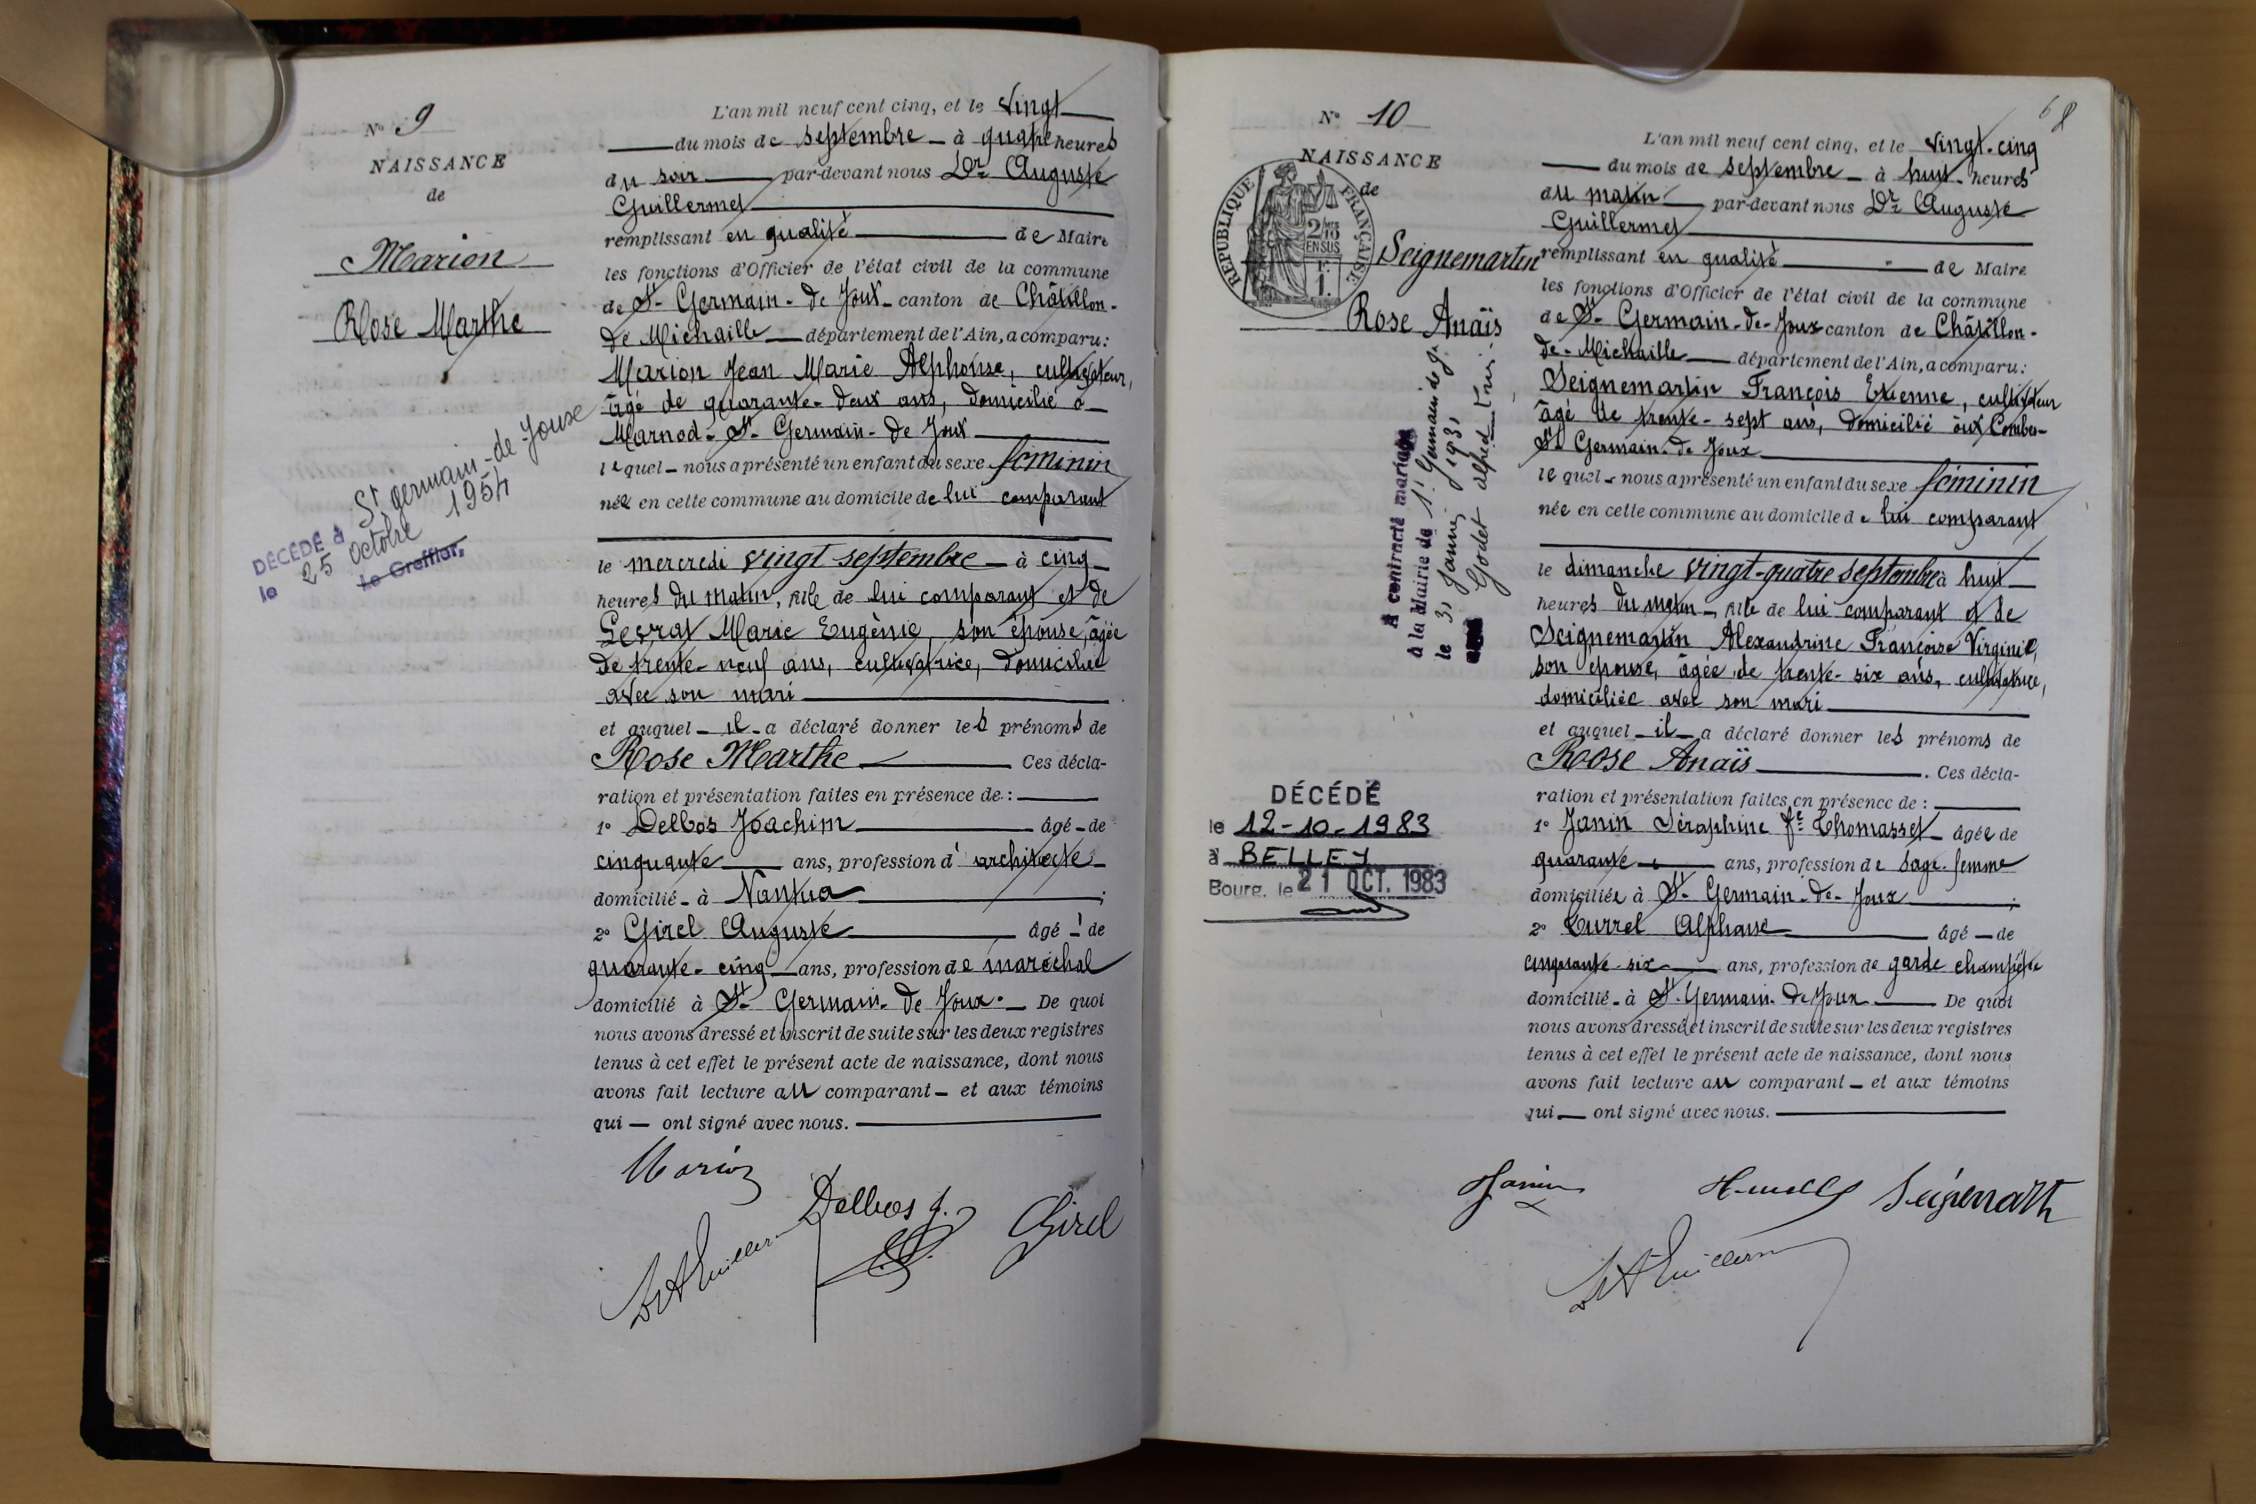 N° 9
NAISSANCE
de
Marion
Rose Marthe
DÉCÉDÉ à St germain-de-Joux
le 25 octobre 1954
Le Greffier,
L'an mil neuf cent cinq, et le vingt
du mois de septembre - à quatre heures
du soir par-devant nous Dr Auguste
Guillermet
remplissant en qualité de Maire
les fonctions d'Officier de l'état civil de la commune
de St-Germain-de Joux - canton de Châtillon-
de Michaille département de l'Ain, a comparu:
Marion Jean Marie Alphonse, cultivateur,
âgé de quarante-deux ans, domicilié à
Marnod - St-Germain-de Joux
lequel - nous a présenté un enfant du sexe féminin
née en cette commune au domicile de lui comparant
le mercredi vingt septembre - à cinq
heures du matin, fille de lui comparant et de
Marie Eugènie, son épouse, âgée
de trente-neuf ans, cultivatrice, domiciliée
avec son mari
et auquel - il - a déclaré donner les prénoms de
Rose Marthe Ces décla-
ration et présentation faites en présence de:
1° Delbos Joachim âgé - de
cinquante ans, profession d'architecte
domicilié - à Nantua ;
2° Girel Auguste âgé - de
quarante-cinq ans, profession de maréchal
domicilié à St-Germain-de Joux. De quoi
nous avons dressé et inscrit de suite sur les deux registres
tenus à cet effet le présent acte de naissance, dont nous
avons fait lecture au comparant - et aux témoins
qui - ont signé avec nous.
Marion
Delbos J.
Girel
Dr A Guillermet
68
N° 10
NAISSANCE
de
RÉPUBLIQUE FRANÇAISE
2/10 EN SUS
1 F.
Seignemartin
Rose Anaïs
A contracté mariage
à la Mairie de St Germain de J.
le 31 Janvier 1931
Godet alfred
DÉCÉDÉ
le 12-10-1983
à BELLEY
Bourg, le 21 OCT. 1983
L'an mil neuf cent cinq, et le vingt-cinq
du mois de septembre - à huit - heures
du matin par-devant nous Dr Auguste
Guillermet
remplissant en qualité de Maire
les fonctions d'Officier de l'état civil de la commune
de St-Germain-de-Joux canton de Châtillon-
de-Michaille département de l'Ain, a comparu:
Seignemartin François Etienne, cultivateur
âgé de trente-sept ans, domicilié aux Combes-
St Germain-de Joux
lequel - nous a présenté un enfant du sexe féminin
née en cette commune au domicile de lui comparant
le dimanche vingt-quatre septembre à huit
heures du matin - fille de lui comparant et de
Seignemartin Alexandrine Françoise Virginie,
son épouse, âgée de trente-six ans, cultivatrice,
domiciliée avec son mari
et auquel - il - a déclaré donner les prénoms de
Rose Anaïs . Ces décla-
ration et présentation faites en présence de:
1° Janin Séraphine fe Thomasset âgée de
quarante ans, profession de sage-femme
domiciliée à St-Germain-de-Joux ;
2° Turrel Alphonse âgé - de
cinquante-six ans, profession de garde champêtre
domicilié - à St-Germain-de Joux De quoi
nous avons dressé et inscrit de suite sur les deux registres
tenus à cet effet le présent acte de naissance, dont nous
avons fait lecture au comparant - et aux témoins
qui - ont signé avec nous.
Janin
Dr A Guillermet